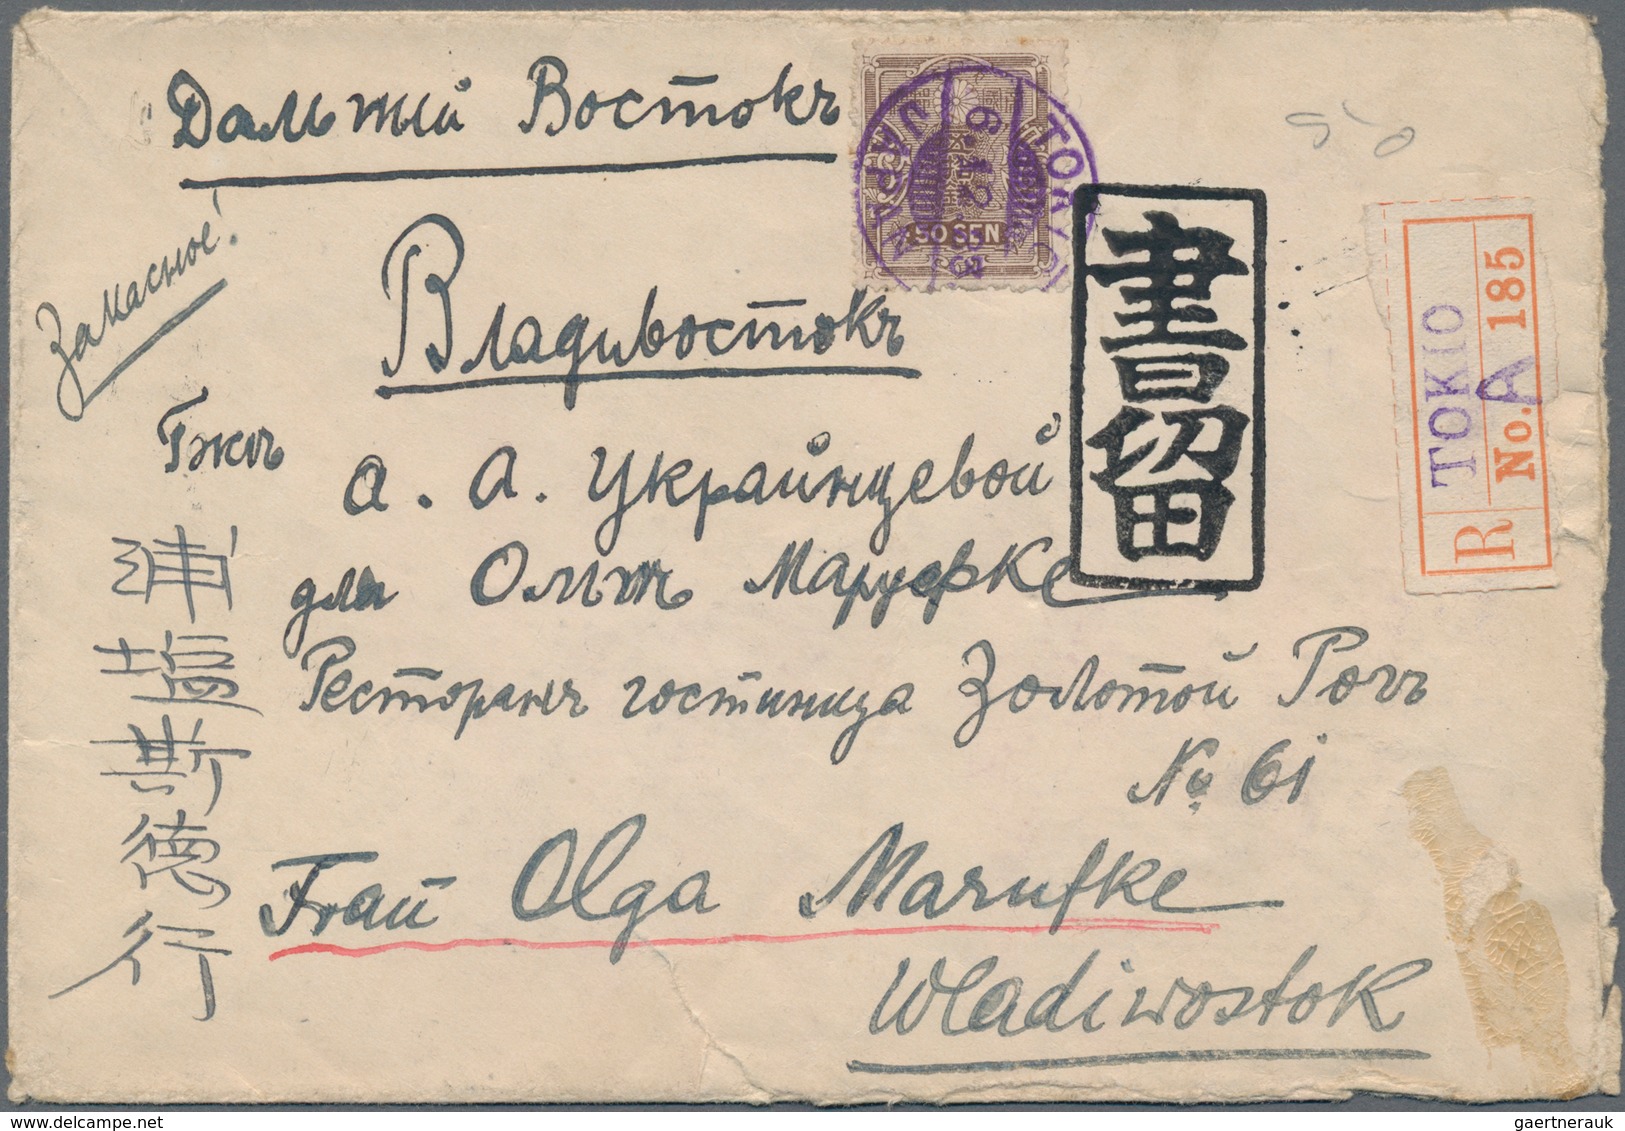 Дальній Востокъ
Владивостокъ
Заказное!
Гжѣ
А. А. Украинцевой
для Ольги Маруфке
Ресторанъ гостиница Золотой Рогъ
№ 61
Frau Olga Marufke
Wladiwostok
浦塩斯德行
書留
TOKYO
JAPAN
50 SEN
R TOKIO
No. A 185
delcampe.net
gaertnerauk